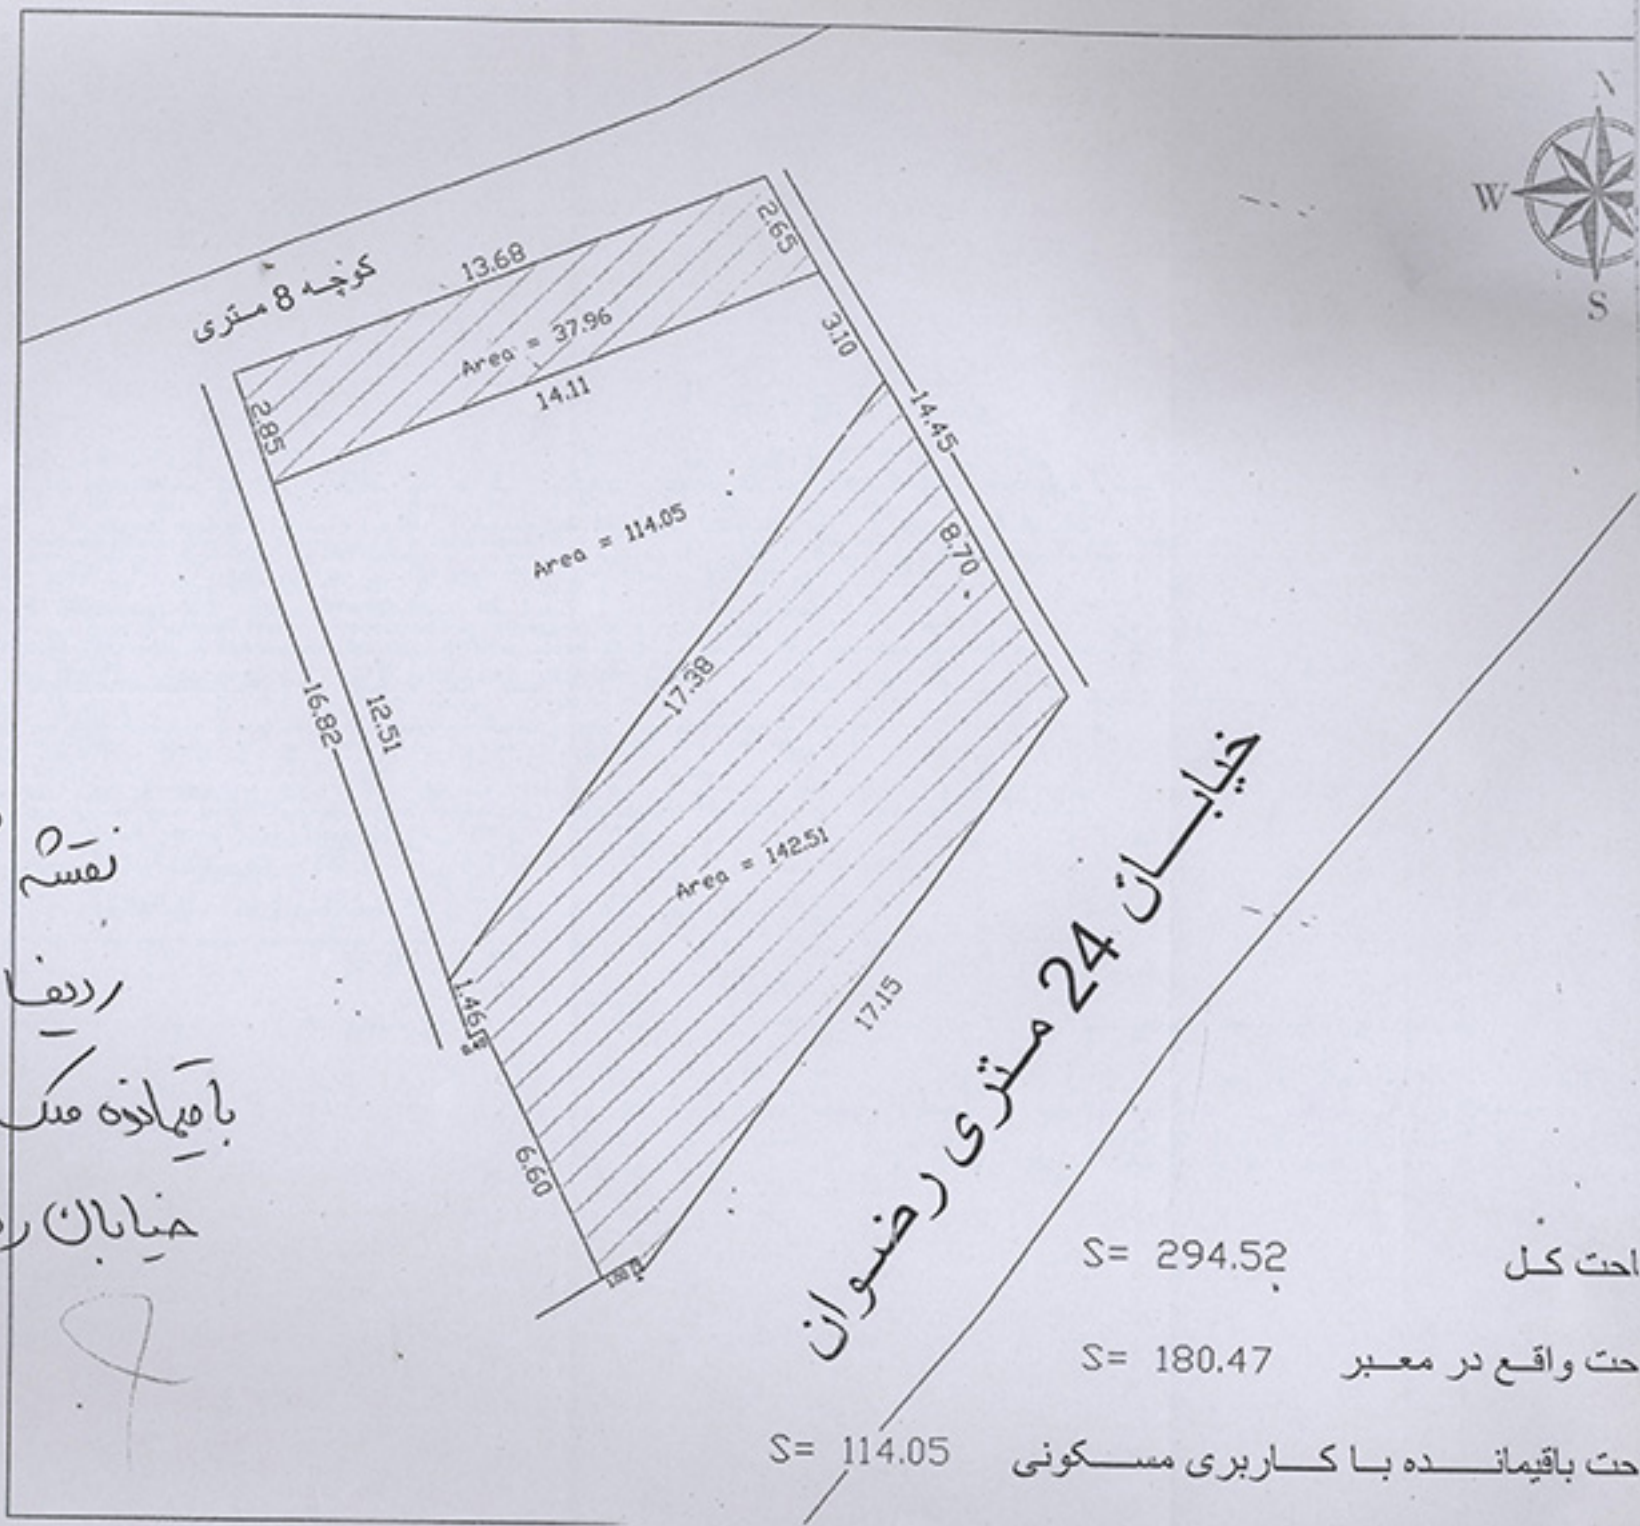 N
W
S
کوچه 8 متری
13.68
2.65
Area = 37.96
14.11
3.10
2.85
14.45
Area = 114.05
8.70
17.38
16.82
12.51
Area = 142.51
1.46
17.15
6.60
خیابان 24 متری رضوان
نقشه
ردیف
باقیمانده ملک
خیابان
احت کل S= 294.52
حت واقع در معبر S= 180.47
حت باقیمانده با کاربری مسکونی S= 114.05